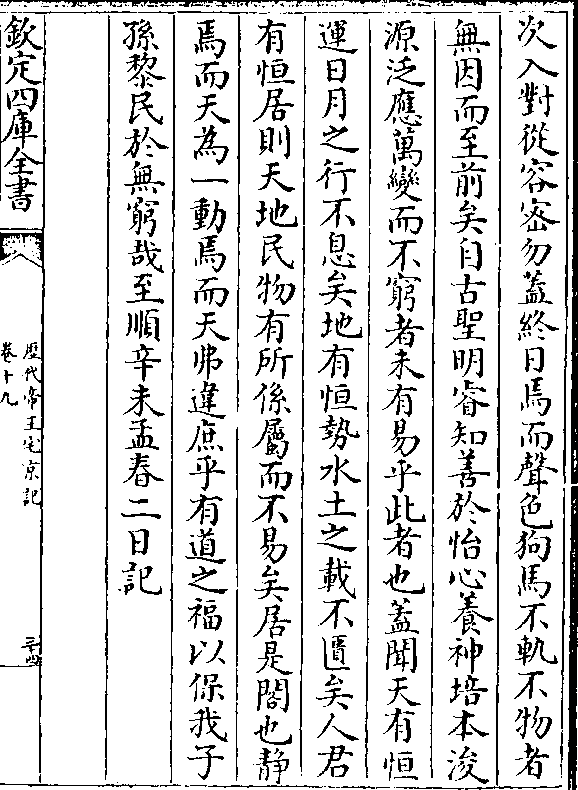 次入對從容密勿蓋終日焉而聲色狗馬不軌不物者
無因而至前矣自古聖明睿知善於怡心養神培本浚
源泛應萬變而不窮者未有易乎此者也蓋聞天有恒
運日月之行不息矣地有恒勢水土之載不匱矣人君
有恒居則天地民物有所係屬而不易矣居是閣也静
焉而天為一動焉而天弗違庶乎有道之福以保我子
孫黎民於無窮哉至順辛未孟春二日記
欽定四庫全書
歴代帝王宅京記
卷十九
三十四